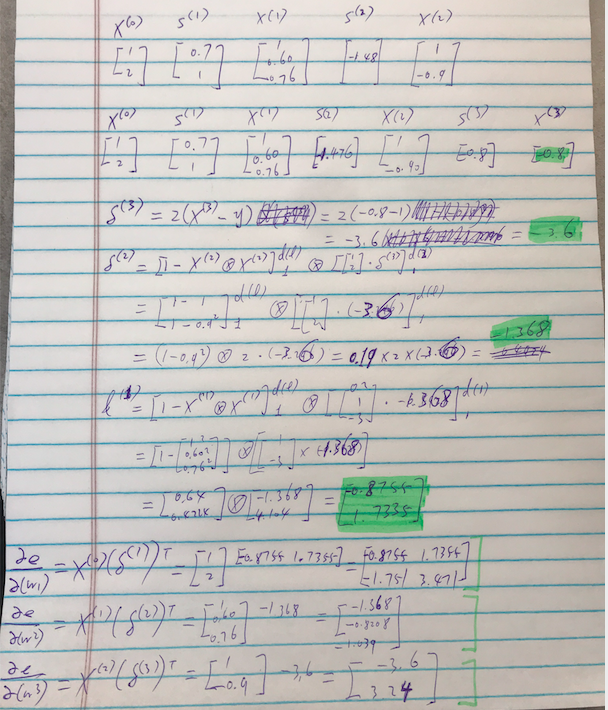 X⁽⁰⁾ S⁽¹⁾ X⁽¹⁾ S⁽²⁾ X⁽²⁾
[1 2] [0.7 1] [1 0.60 0.76] [-1.48] [1 -0.9]
X⁽⁰⁾ S⁽¹⁾ X⁽¹⁾ S⁽²⁾ X⁽²⁾ S⁽³⁾ X⁽³⁾
[1 2] [0.7 1] [1 0.60 0.76] [-1.476] [1 -0.90] [-0.8] [-0.8]
δ⁽³⁾ = 2(X⁽³⁾ - y) = 2(-0.8-1)
= -3.6 = -3.6
δ⁽²⁾ = [1 - X⁽²⁾ ⊗ X⁽²⁾]₁^d(ℓ) ⊗ [[1 2] · δ⁽³⁾]₁^d(2)
= [1 - 1 1 - 0.9²]₁^d(ℓ) ⊗ [[1 2] · (-3.6)]₁^d(ℓ)
-1.368
= (1-0.9²) ⊗ 2 · (-3.6) = 0.19 x 2 x (-3.6) =
⁽¹⁾ = [1 - X⁽¹⁾ ⊗ X⁽¹⁾]₁^d(ℓ) ⊗ [[0.2 1 -3] · -1.368]₁^d(1)
= [1 - [1² 0.60² 0.76²]] ⊗ [[1 -3] x (-1.368)]
= [0.64 0.4224] ⊗ [-1.368 4.104] = [-0.8755 1.7335]
∂e/∂(w1) = X⁽⁰⁾(δ⁽¹⁾)ᵀ = [1 2] [-0.8755 1.7355] = [-0.8755 1.7355 -1.751 3.471]
∂e/∂(w²) = X⁽¹⁾(δ⁽²⁾)ᵀ = [1 0.60 0.76] -1.368 = [-1.368 -0.8208 -1.039]
∂e/∂(w3) = X⁽²⁾(δ⁽³⁾)ᵀ = [1 -0.9] -3.6 = [-3.6 3.24]